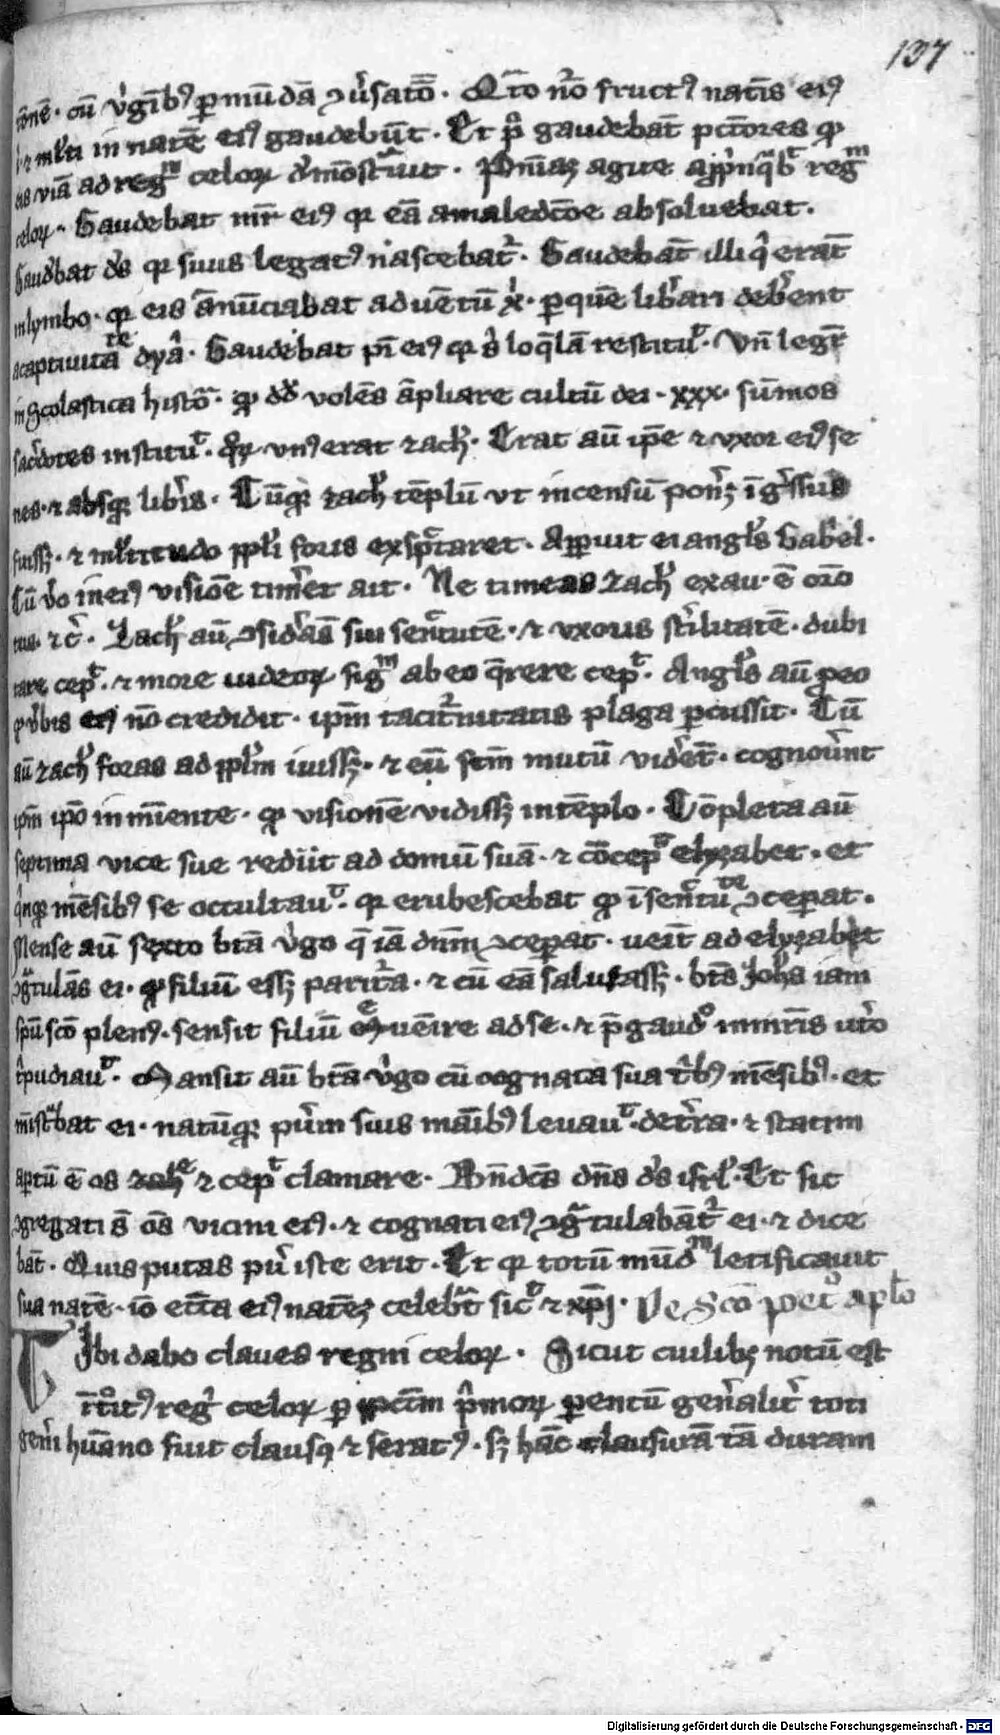 137
cōnē · cū v̓gīb⁹ ꝑ mūdā ↄu̓satōꝫ · Q̄rto nō fruct⁹ natīs ei⁹
ml̓ti in natē ei⁹ gaudebūt · Et p̄ gaudebāt pctores qꝛ
eis viā ad regᵐ celoꝝ d̓mōst̄uit · Pn̄iaꝫ agite app̄nqᵃbᵗ regᵐ
celoꝝ · Gaudebat mr̄ ei⁹ qꝛ eā a maledcōe absoluebat ·
Gaud̓bat d̓s qꝛ suus legat⁹ nascebat᷑ · Gaudebāt illi q̓ erāt
in lymbo · qꝛ eis ānūciabat aduētū xp̄i · ꝑ quē lib̓ari deb̓ent
a captiuitaᵗᵉ dyā · Gaudebat pr̄ ei⁹ qꝛ s̓ loq̄lā restituᵗ · Vn̄ legr̄
in scolastica histōᵃ · qꝛ dd̓ volēs āpliare cultū dei · xxx · sūmos
sac̓dotes instituᵗ · qoꝝ vn⁹ erat zach̓ · Erat aū ip̄e ⁊ vxor ei⁹ se
nes · ⁊ absqꝫ lib̓is · Cūqꝫ zach̓ tēplū vt incensū pon̓ꝫ īg̓ssus
fuissꝫ · ⁊ ml̓titudo ppl̓i foris exsp̄ctaret · Apparuit ei angl̓s Gab̓el ·
Cū v̓o in ei⁹ visiōe tim̓et ait · Ne timeas zach̓ exau · ē or̄o
tua · ⁊c̓ · Zach̓ aū ↄsid̓ās sui senectutē · ⁊ vxoris st̓ilitatē · dubi
tare cepᵗ · ⁊ more iudeoꝝ sigᵐ ab eo q̄rere cepᵗ · Angl̓s aū ꝓ eo
qꝛ v̓bis ei⁹ nō credidit · ip̄m tacit᷑nitatis plaga ꝑcussit · Cū
aū zach̓ foras ad ppl̓m iuissꝫ · ⁊ eū sc̄m mutū vid̓et · cognou̓nt
ip̄m ip̄o in nu̓ente · qꝛ visionē vidissꝫ in tēplo · Cōpleta aū
septima vice sue rediit ad domū suā · ⁊ cōcepᵗ elyzabet · et
q̓nqꝫ mēsib⁹ se occultauᵗ · qꝛ erubescebat qꝛ ī senectuᵗᵉ ↄceꝑat ·
Mense aū sexto btā v̓go q̄ iā dn̄m ↄceꝑat · ueīt ad elyzabet
ↄg̓tulās ei · qꝛ filiū essꝫ paritᵃa · ⁊ cū eā salutassꝫ · bt̄s Joh̓s iam
spū scō plen⁹ · sensit filiū uēire ad se · ⁊ p̄ gaudᵒ in mr̄is ut̓o
t̓pudiauᵗ · Mansit aū btā v̓go cū cognata sua t̓b⁹ mēsib⁹ · et
mist̓bat ei · natūqꝫ pu̓m suis maīb⁹ leuauᵗ · de t̓ra · ⁊ statim
aꝑtū ē os zach̓ ⁊ cepᵗ clamare · Bn̄dcs dn̄s d̓s isrl̓ · Et sic
ↄgregati s̄ oēs vicini ei⁹ · ⁊ cognati ei⁹ ↄg̓tulabāt᷑ ei · ⁊ dice
bāt · Quis putas pu̓ iste erit · Et qꝛ totū mūdᵐ letificauit
sua natē · iō ecc̄a ei⁹ natēꝫ celeb̓t sicᵗ ⁊ xp̄i · De Scō petᵒ aplo
Tibi dabo claues regni celoꝝ · Sicut cuilibꝫ notū est
īt̓oit⁹ reg̓ celoꝝ ꝑ pctm̄ p̓moꝝ parentū gen̓alit̓ toti
gen̓i hūano fuit claus⁹ ⁊ serat⁹ · sꝫ hāc clausurā tā duram